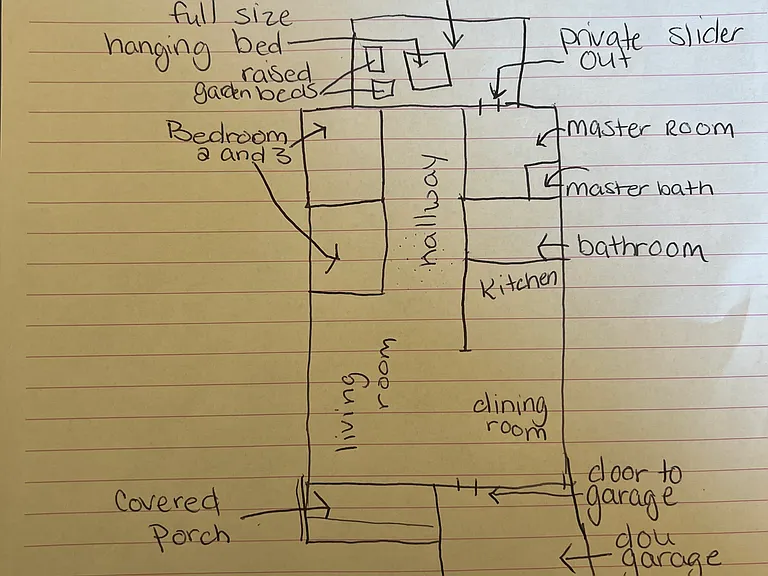 full size
hanging bed
raised
garden beds
private slider
out
Bedroom
2 and 3
master room
master bath
hallway
bathroom
kitchen
living
room
dining
room
covered
porch
door to
garage
dou
garage